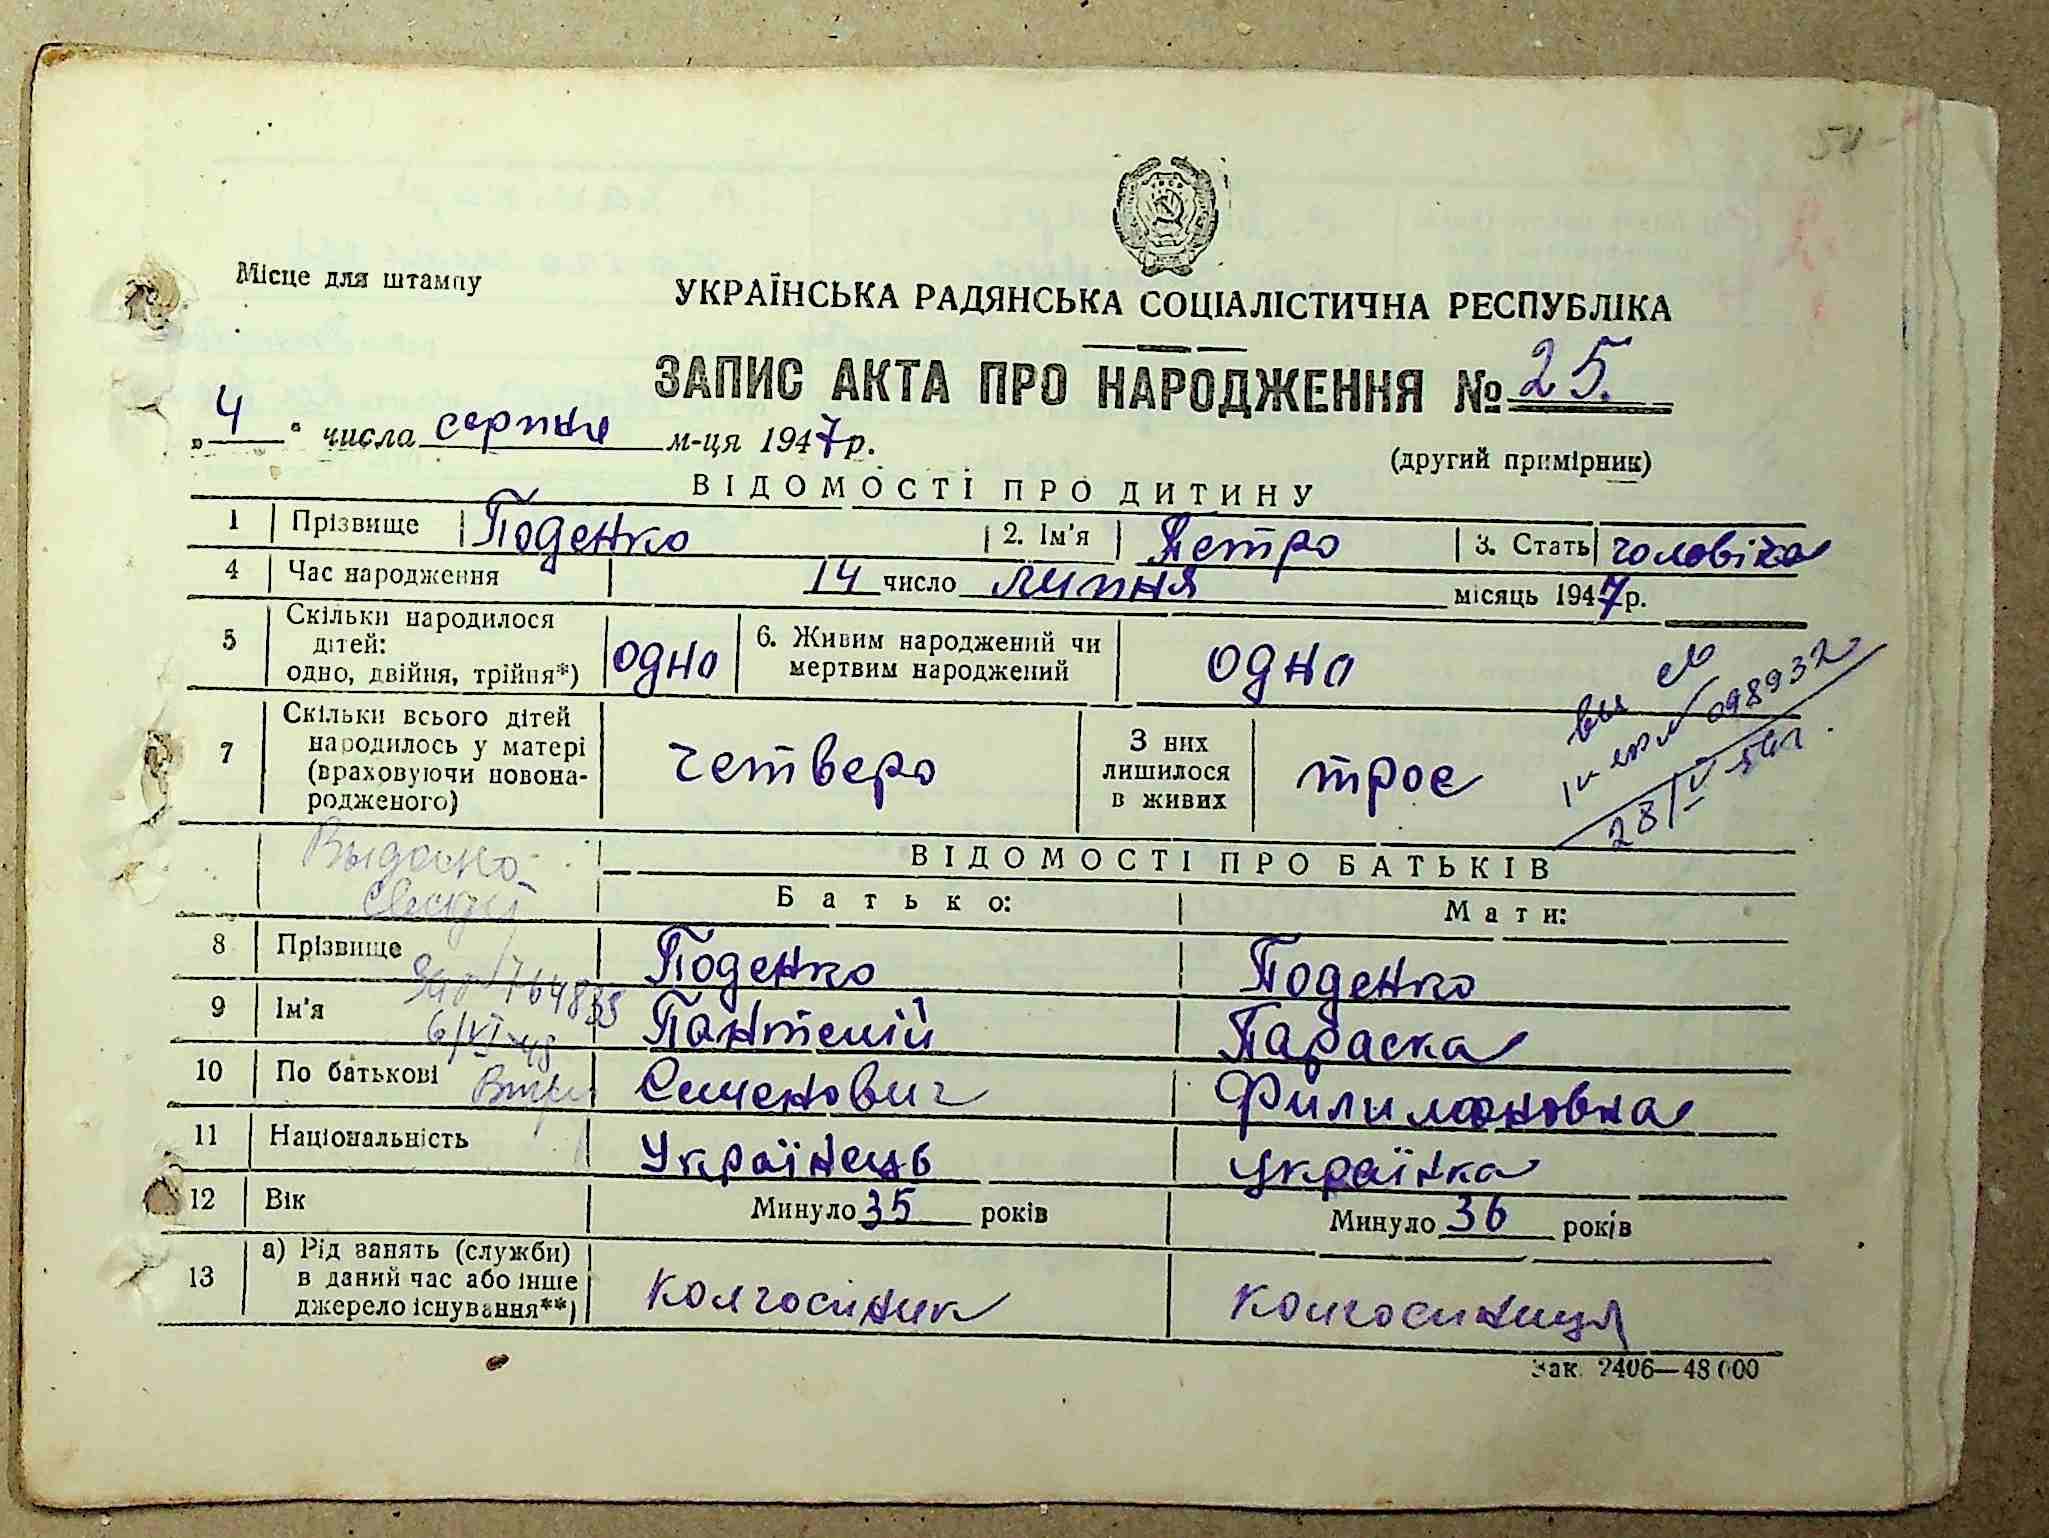 Місце для штампу
УКРАЇНСЬКА РАДЯНСЬКА СОЦІАЛІСТИЧНА РЕСПУБЛІКА
ЗАПИС АКТА ПРО НАРОДЖЕННЯ № 25.
„4“ числа серпня м-ця 1947 р.
(другий примірник)
ВІДОМОСТІ ПРО ДИТИНУ
1 Прізвище Поденко 2. Ім'я Петро 3. Стать чоловіча
4 Час народження 14 число липня місяць 1947 р.
5 Скільки народилося дітей: одно, двійня, трійня*) одно 6. Живим народжений чи мертвим народжений одно
7 Скільки всього дітей народилось у матері (враховуючи новонародженого) четверо З них лишилося в живих троє
098932
28/V 54 г.
Выдано
ВІДОМОСТІ ПРО БАТЬКІВ
Батько: Мати:
8 Прізвище Поденко Поденко
764835
9 Ім'я Пантелій Параска
6/VI-48
10 По батькові Семенович Филимоновна
11 Національність Українець українка
12 Вік Минуло 35 років Минуло 36 років
13 а) Рід занять (служби) в даний час або інше джерело існування**) колгоспник колгоспниця
Зак. 2406—48 000